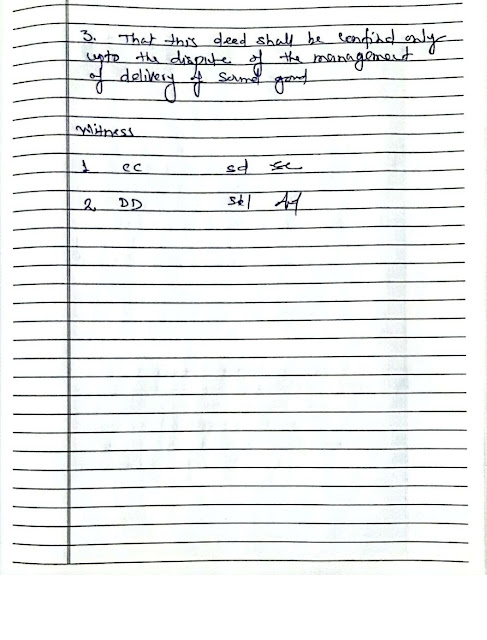 3. That this deed shall be confind only
upto the dispute of the management
of delivery of good
Witness
1 CC sd
2 DD sd